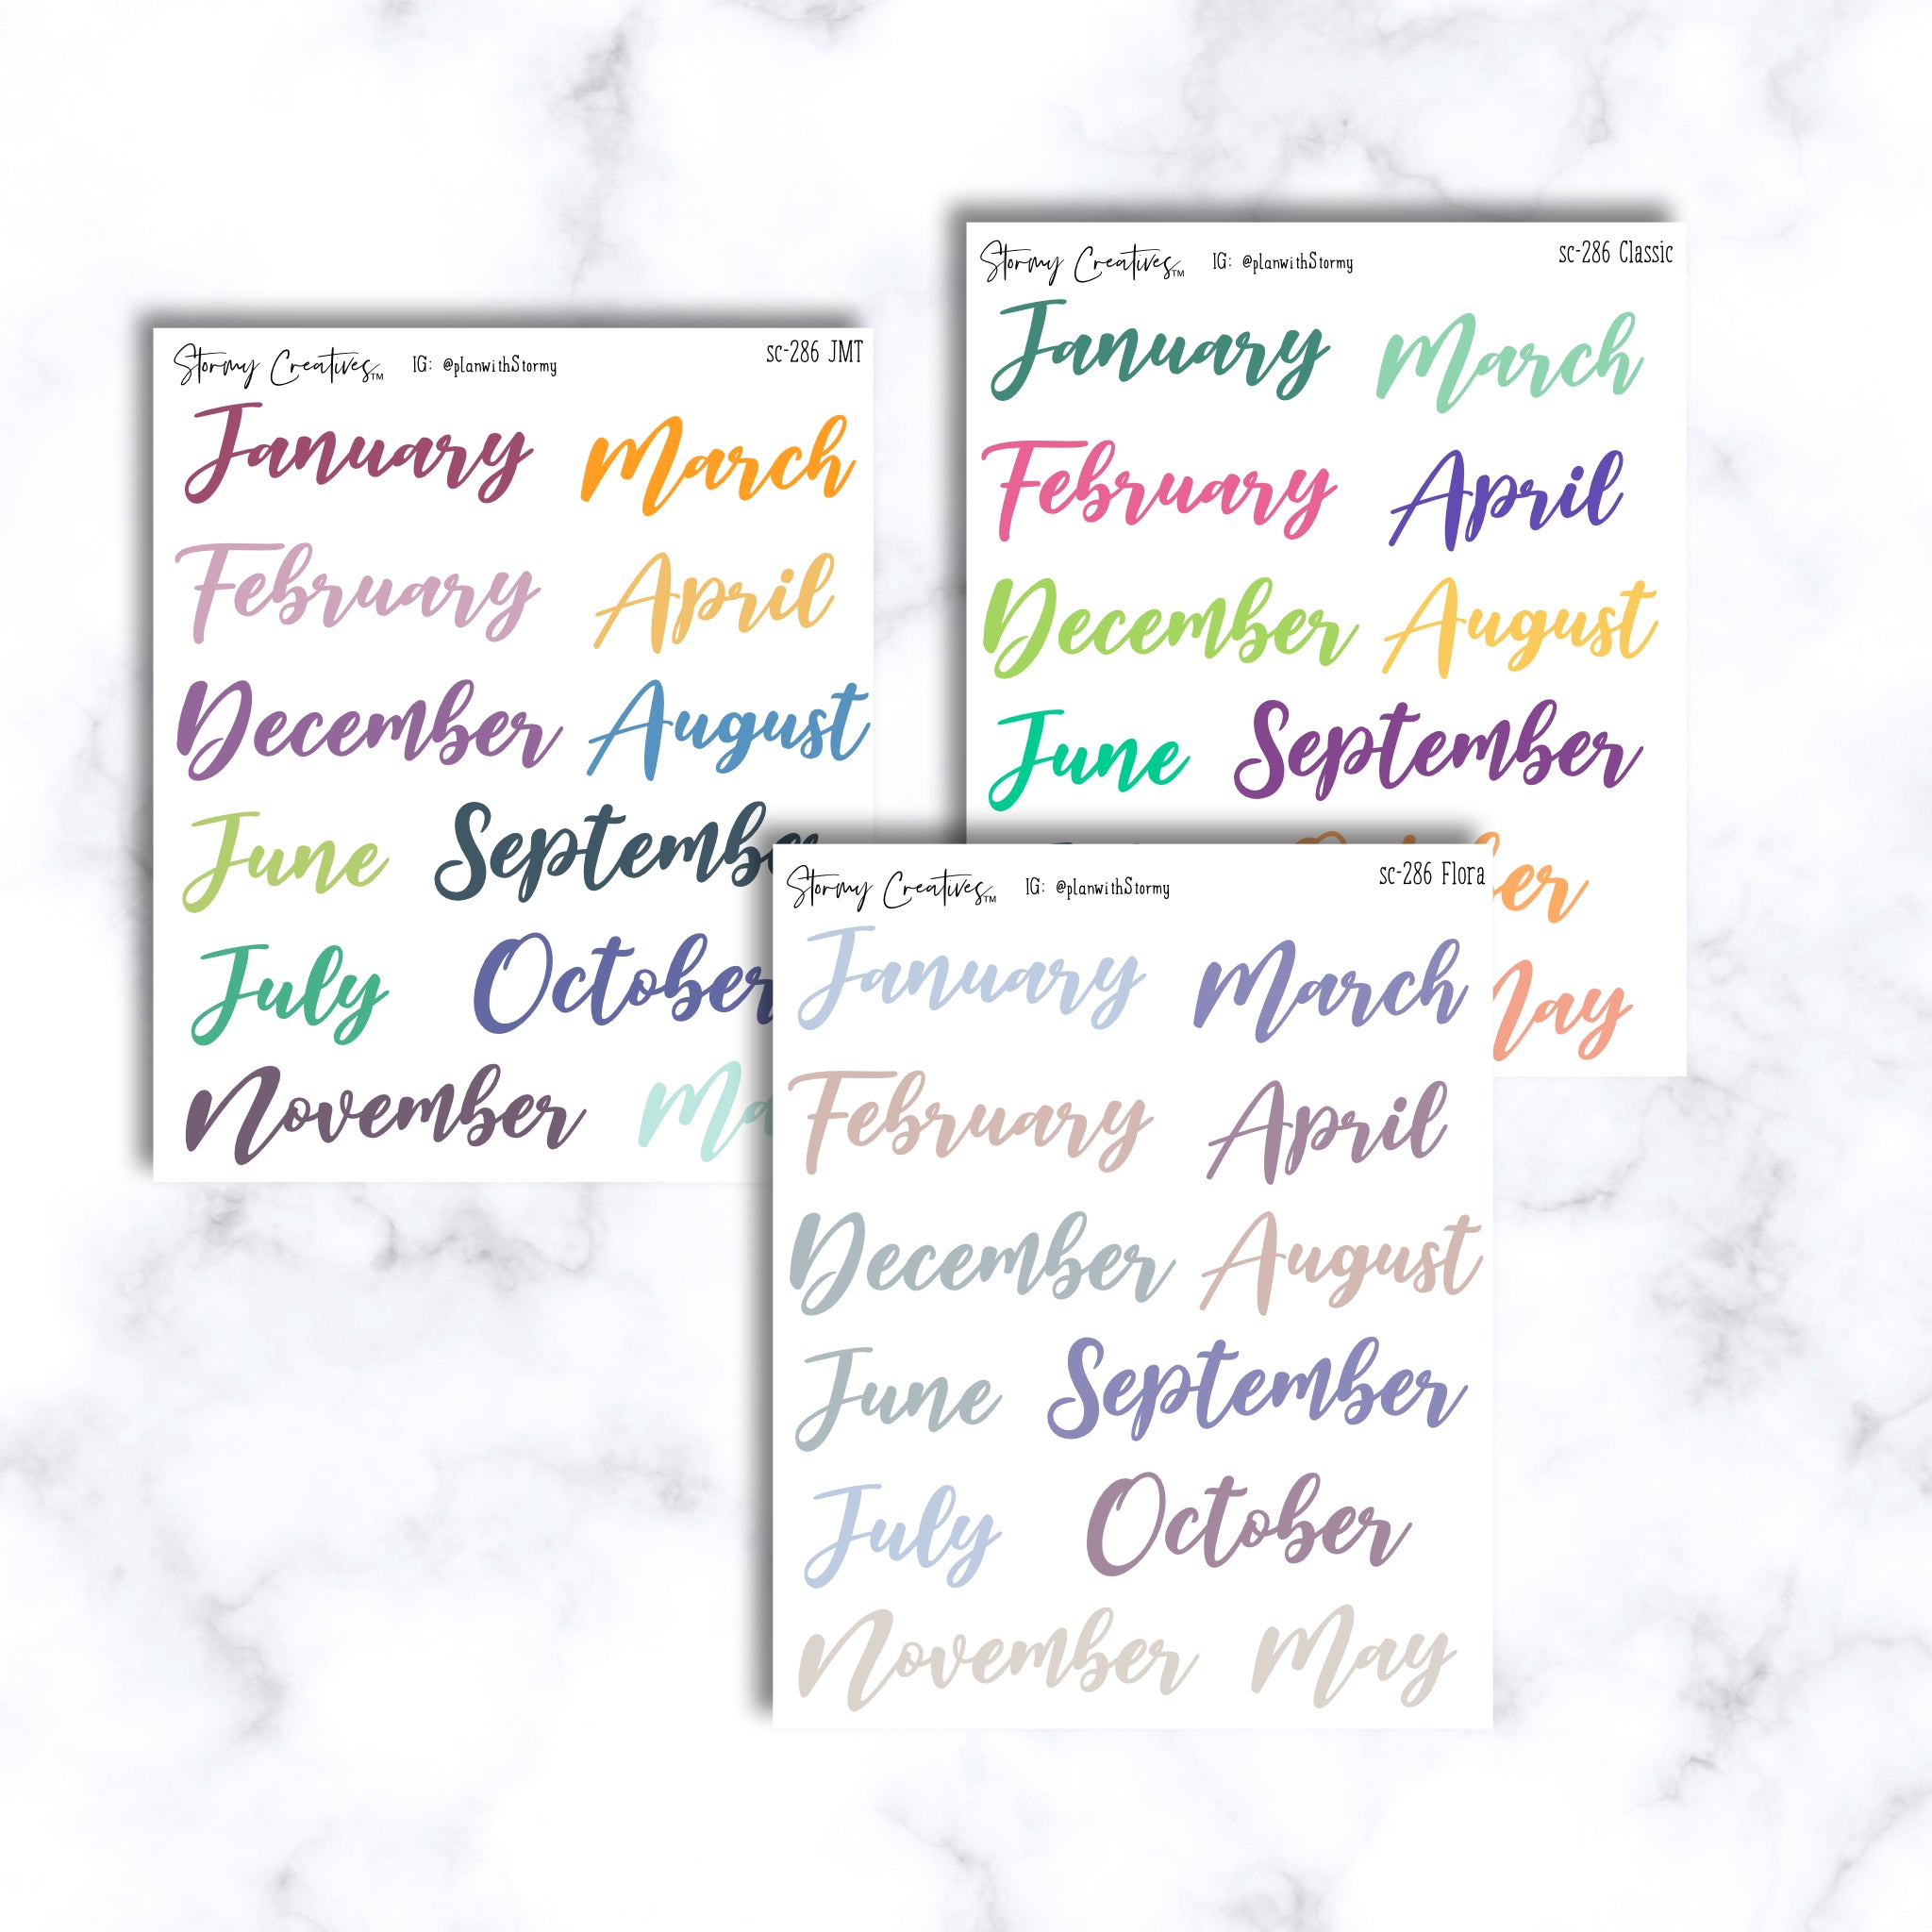 Stormy Creatives™ IG: @planwithStormy sc-286 JMT
January March
February April
December August
June
July
November
Stormy Creatives™ IG: @planwithStormy sc-286 Classic
January March
February April
December August
June September
Stormy Creatives™ IG: @planwithStormy sc-286 Flora
January March
February April
December August
June September
July October
November May